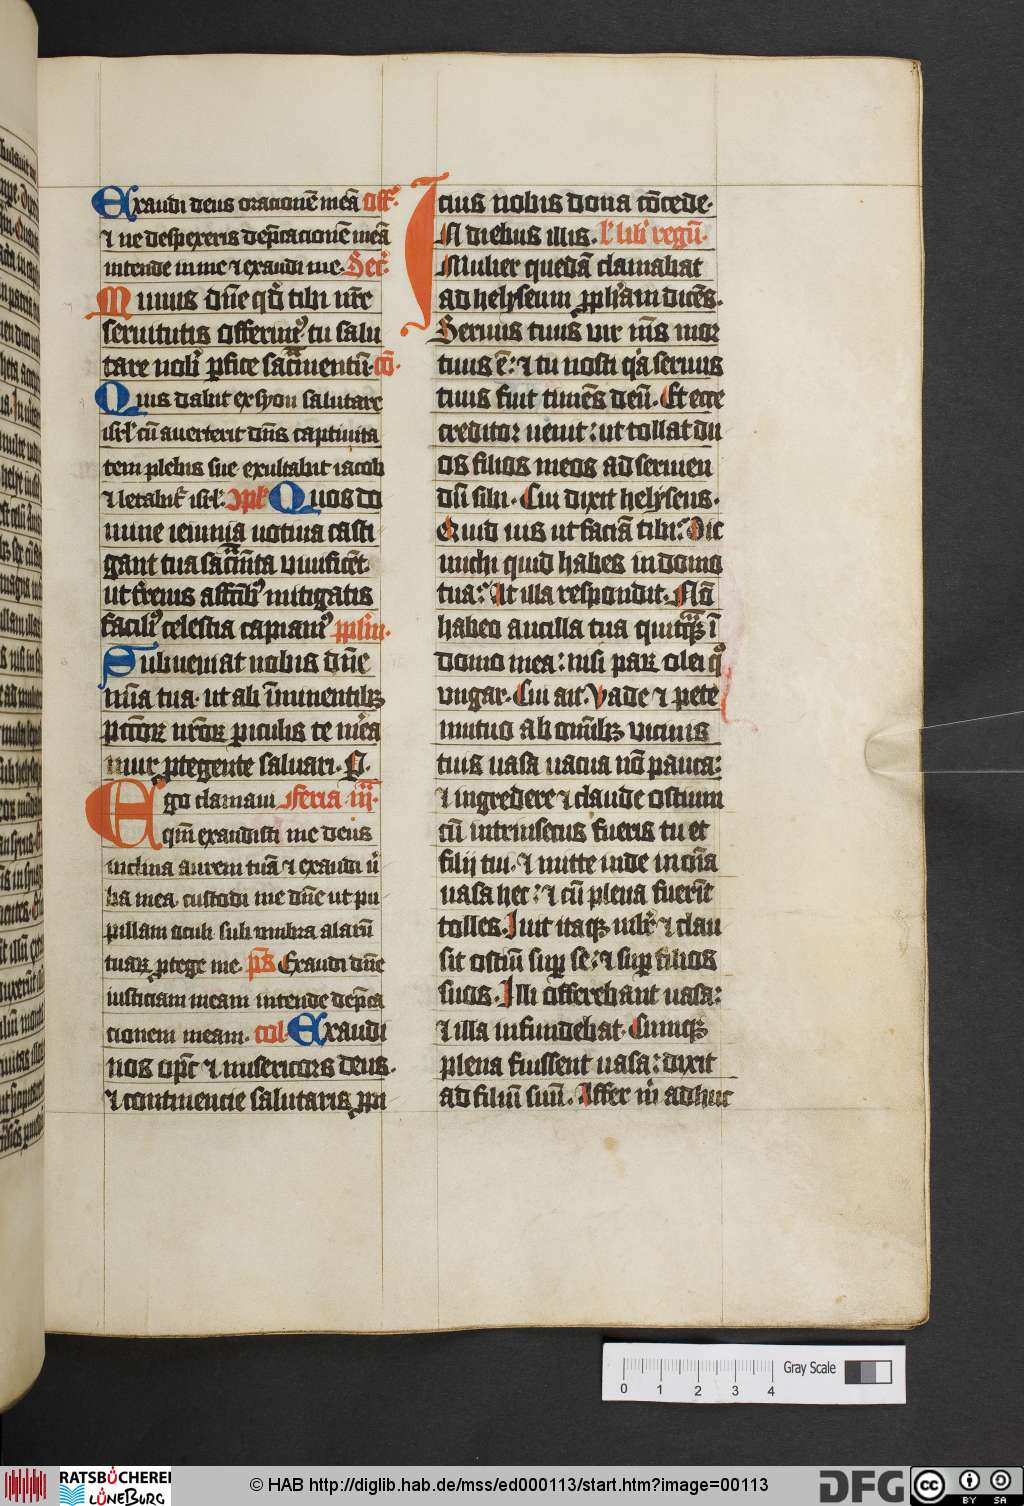 Exaudi deus oracionē meā Off̄.
⁊ ne despexeris dep̄cacionē meā
intende in me ⁊ exaudi me. Secr̄.
Munus dn̄e qd̄ tibi nr̄e
seruitutis offerim᷒ tu salu
tare nob̄ ꝑfice sac̄mentū. cō.
Quis dabit ex syon salutare
isrl̄ cū auerterit dn̄s captiuita
tem plebis sue exultabit iacob
⁊ letabit᷑ isrl̄. ꝯpl̄. Quos do
mine ieiunia uotiua casti
gant tua sac̄menta uiuificēt.
ut t̄renis affc̄ib᷒ mitigatis
facili᷒ celestia capiam᷒ ꝓplm̄.
Subueniat nobis dn̄e
mīa tua. ut ab īminentibꝫ
pc̄c̄oꝝ nr̄oꝝ ꝑiculis te m̄ea
mur ꝓtegente saluari. P.
Ego clamaui Feria iii.
qm̄ exaudisti me deus
inclina aurem tuā ⁊ exaudi ū
ba mea. custodi me dn̄e ut pu
pillam oculi sub umbra alarū
tuaꝝ ꝓtege me. p̄s. Exaudi dn̄e
iusticiam meam intende dep̄ca
cionem meam. col. Exaudi
nos op̄c ⁊ misericors deus.
⁊ continencie salutaris ꝓpi
cius nobis dona cōcede.
IN diebus illis. l̄ lib̄ regū.
Mulier quedā clamabat
ad helyseum ꝓph̄am dicēs.
Seruus tuus uir m̄s mor
tuus ē: ⁊ tu nosti q̄a seruus
tuus fuit timēs deū. Et ecce
creditor uenit: ut tollat du
os filios meos ad seruien
dū sibi. Cui dixit helyseus.
Quid uis ut faciā tibi: Dic
michi quid habes in domo
tua: At illa respondit. Nō
habeo ancilla tua quicq̄ꝫ ī
domo mea: nisi par olei q̊
ungar. Cui ait. Vade ⁊ pete
mutuo ab om̄ibꝫ vicinis
tuis uasa uacua nō pauca:
⁊ ingredere ⁊ claude ostium
cū intrinsecus fueris tu et
filij tui. ⁊ mitte inde in om̄ia
uasa hec: ⁊ cū plena fuerīt
tolles. Iuit itaqꝫ ml̄r ⁊ clau
sit ostiū suꝑ se: ⁊ suꝑ filios
suos. Illi offerebant uasa:
⁊ illa infundebat. Cumqꝫ
plena fuissent uasa: dixit
ad filiū suū. Affer m̄ adhuc
Gray Scale
0 1 2 3 4
RATSBÜCHEREI
LÜNEBURG
© HAB http://diglib.hab.de/mss/ed000113/start.htm?image=00113
DFG
cc BY SA